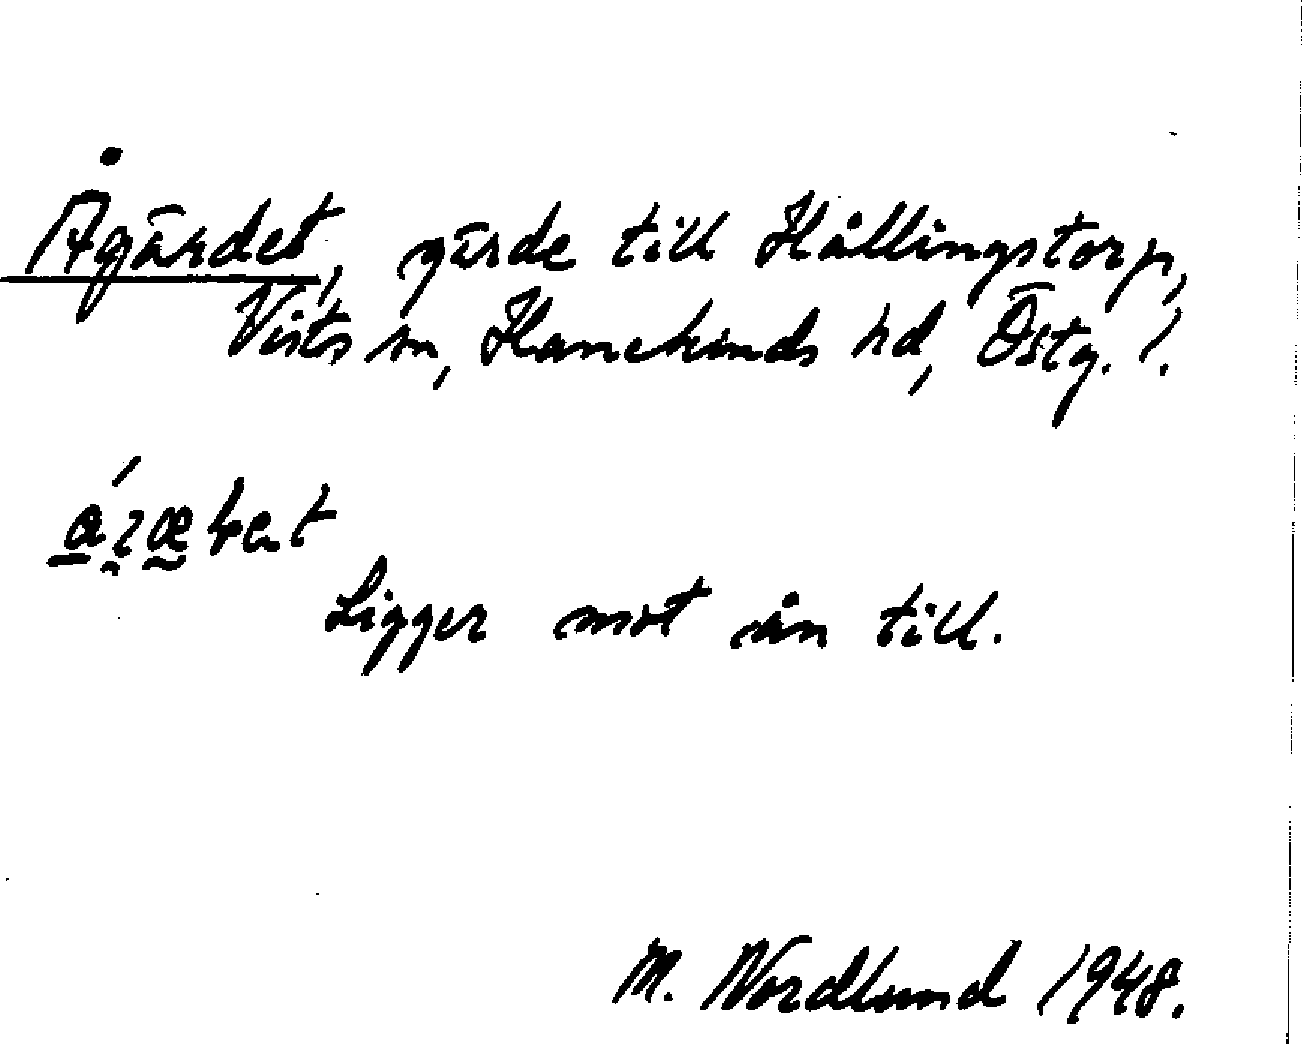 Ågärdet, gärde till Hållingstorp,
Vists sn, Hanekinds hd, Östg. l.
Ligger mot ån till.
M. Nordlund 1948.